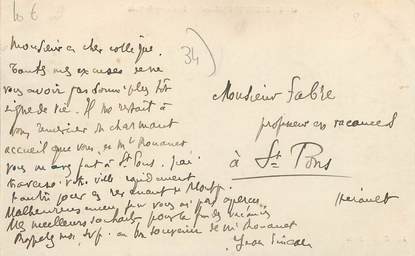 10 €
34)
Monsieur et cher collègue.
Toutes mes excuses de ne
vous avoir pas donné plus tôt
signe de vie. Il me restait à
vous remercier du charmant
accueil que vous, et Mr Rouanet
vous m'avez fait à St Pons. J'ai
traversé votre ville rapidement
en revenant de Montp.
Malheureusement je vous ai pas aperçu.
Mes meilleurs souhaits pour la fin des vacances
Rappelez moi, svp. au bon souvenir de Mr Rouanet
Monsieur Fabre
professeur en vacances
à St Pons
Hérault